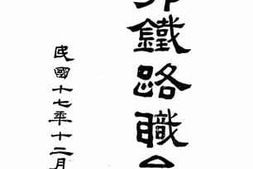 鐵路職
民國十七年十二月